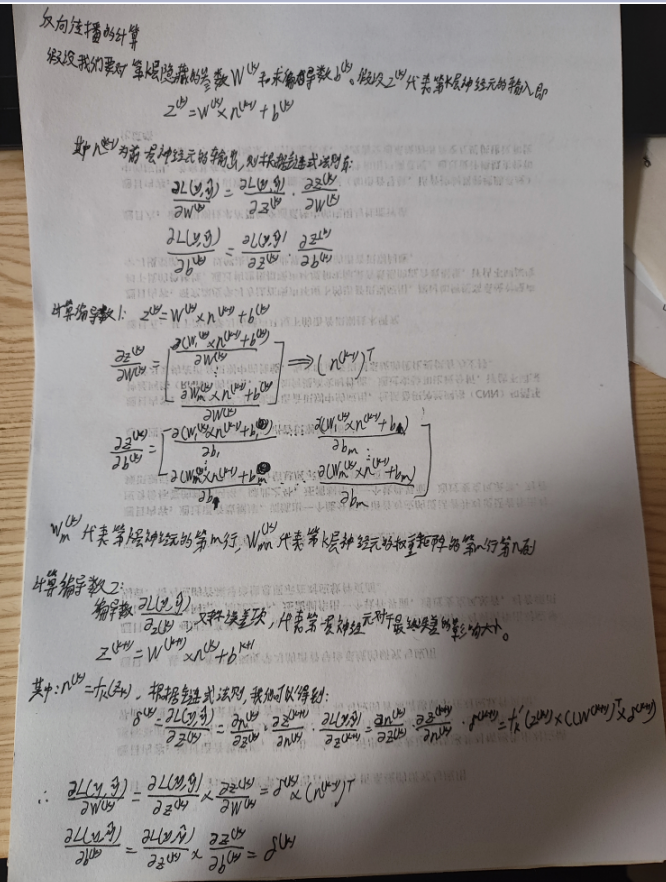 反向传播的计算
假设我们要对第k层隐藏的参数W^(k)和求偏导数b^(k)。假设Z^(k)代表第k层神经元的输入即
Z^(k)=W^(k)×n^(k-1)+b^(k)
其中n^(k-1)为前一层神经元的输出,则根据链式法则有:
∂L(y,ŷ)/∂W^(k) = ∂L(y,ŷ)/∂Z^(k) · ∂Z^(k)/∂W^(k)
∂L(y,ŷ)/∂b^(k) = ∂L(y,ŷ)/∂Z^(k) · ∂Z^(k)/∂b^(k)
计算偏导数1: Z^(k)=W^(k)×n^(k-1)+b^(k)
∂Z^(k)/∂W^(k) = [∂(W_1^(k)×n^(k-1)+b^(k))/∂W^(k) ⋮ ∂W_m^(k)×n^(k-1)+b^(k))/∂W^(k)] ⟹ (n^(k-1))^T
∂Z^(k)/∂b^(k) = [∂(W_1^(k)×n^(k-1)+b_1)/∂b_1 … ∂(W_1^(k)×n^(k-1)+b_1)/∂b_m
⋮ ⋮
∂(W_m^(k)×n^(k-1)+b_m)/∂b_1 … ∂(W_m^(k)×n^(k-1)+b_m)/∂b_m]
W_m^(k)代表第k层神经元的第m行,W_mn^(k)代表第k层神经元的权重矩阵的第m行第n列
计算偏导数2:
偏导数∂L(y,ŷ)/∂Z^(k)又称误差项,代表第一层神经元对于最终误差的影响大小。
Z^(k+1)=W^(k+1)×n^(k)+b^(k+1)
其中:n^(k)=f_k(Z_k),根据链式法则,我们可以得到:
δ^(k)=∂L(y,ŷ)/∂Z^(k)=∂n^(k)/∂Z^(k)·∂Z^(k+1)/∂n^(k)·∂L(y,ŷ)/∂Z^(k+1)=∂n^(k)/∂Z^(k)·∂Z^(k+1)/∂n^(k)·δ^(k+1)=f_k'(Z^(k))×((W^(k+1))^T×δ^(k+1))
∴ ∂L(y,ŷ)/∂W^(k) = ∂L(y,ŷ)/∂Z^(k) × ∂Z^(k)/∂W^(k) = δ^(k)×(n^(k-1))^T
∂L(y,ŷ)/∂b^(k) = ∂L(y,ŷ)/∂Z^(k) × ∂Z^(k)/∂b^(k) = δ^(k)